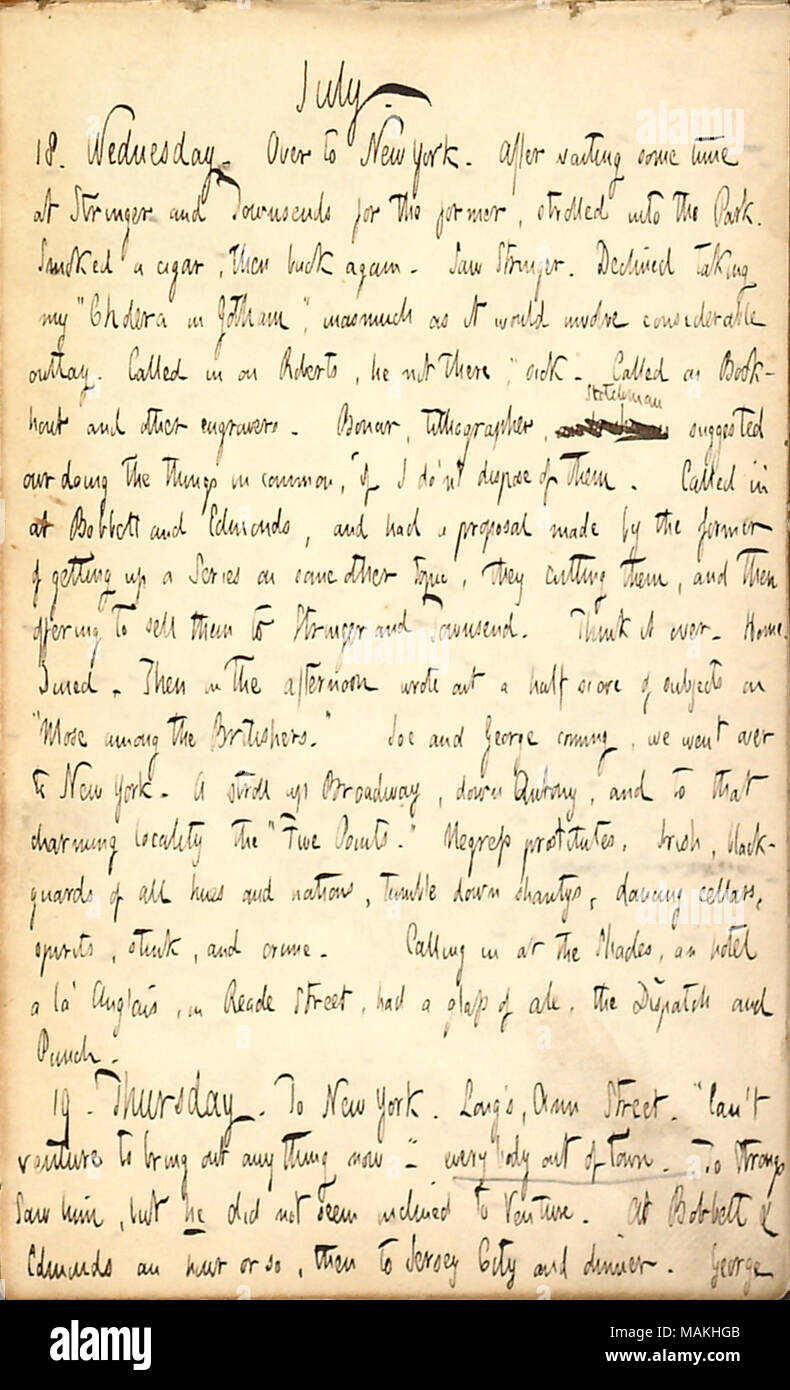 July.
18. Wednesday. Over to New York. After waiting some time
at Stringer and Downsends for the former, strolled into the Park.
Smoked a cigar, then back again. Saw Stringer. Declined taking
my "Cholera in Gotham", inasmuch as it would involve considerable
outlay. Called in on Roberts, he not there, sick. Called on Book-
hout and other engravers. Bonar, lithographer, Scotchman suggested
our doing the things in common, if I do'nt dispose of them. Called in
at Bobbett and Edmonds, and had a proposal made by the former
of getting up a Series on some other topic, they cutting them, and then
offering to sell them to Stringer and Townsend. Think it over. Home.
Dined. Then in the afternoon wrote out a half score of subjects on
"Mose among the Britishers." Joe and George coming, we went over
to New York. A stroll up Broadway, down Antony, and to that
charming locality the "Five Points." Negress prostitutes, Irish, black-
guards of all hues and nations, tumble down shantys, dancing cellars,
spirits, stink, and crime. Calling in at the Shades, an hotel
a la' Anglais, in Reade Street, had a glass of ale, the Dispatch and
Punch.
19. Thursday. To New York. Long's, Ann Street. "Can't
venture to bring out any thing now - every body out of town. To Strongs
Saw him, but he did not seem inclined to Venture. At Bobbett &
Edmonds an hour or so, then to Jersey City and dinner. George
alamy
Image ID: MAKHGB
www.alamy.com